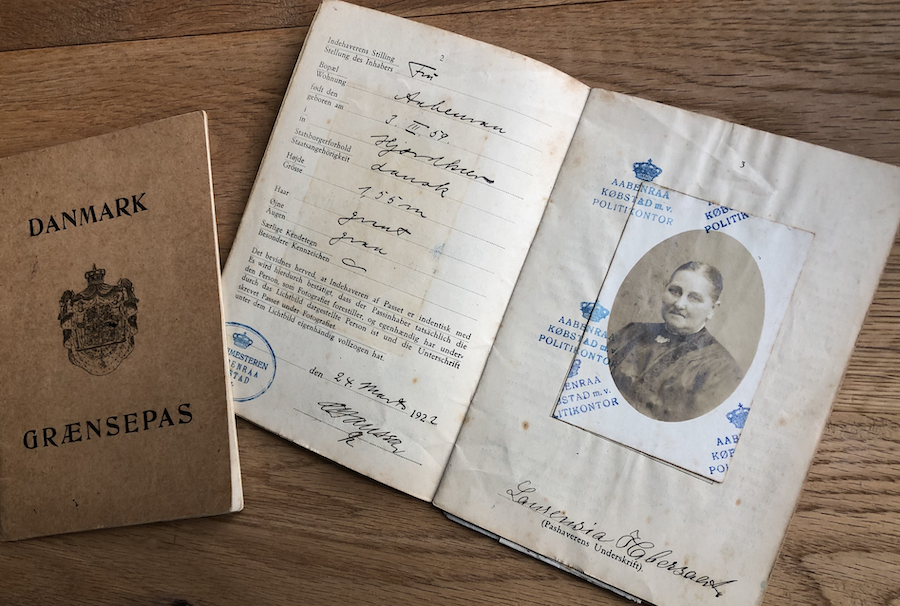 DANMARK
GRÆNSEPAS
2
Indehaverens Stilling
Stellung des Inhabers
Fru
Bopæl
Wohnung
Aabenraa
født den
geboren am
3. III. 57.
i
in
Statsborgerforhold
Staatsangehörigkeit
dansk
Højde
Grösse
155 m
Haar
graat
Øjne
Augen
graa
Særlige Kendetegn
Besondere Kennzeichen
Det bevidnes herved, at Indehaveren af Passet er indentisk med
den Person, som Fotografiet forestiller, og egenhændig har under-
skrevet Passet under Fotografiet.
Es wird hierdurch bestätigt, dass der Passinhaber tatsächlich die
durch das Lichtbild dargestellte Person ist und die Unterschrift
unter dem Lichtbild eigenhändig vollzogen hat.
den 24. Marts 1922
MESTEREN
BENRAA
STAD
3
AABENRAA
KØBSTAD m. v.
POLITIKONTOR
KØB
POLITIK
AABEN
KØBSTAD m.
POLITIKONTO
ENRAA
KØBSTAD m. v.
LITIKONTOR
AAB
KØB
PO
Laurensia Habersaat
(Pashaverens Underskrift).